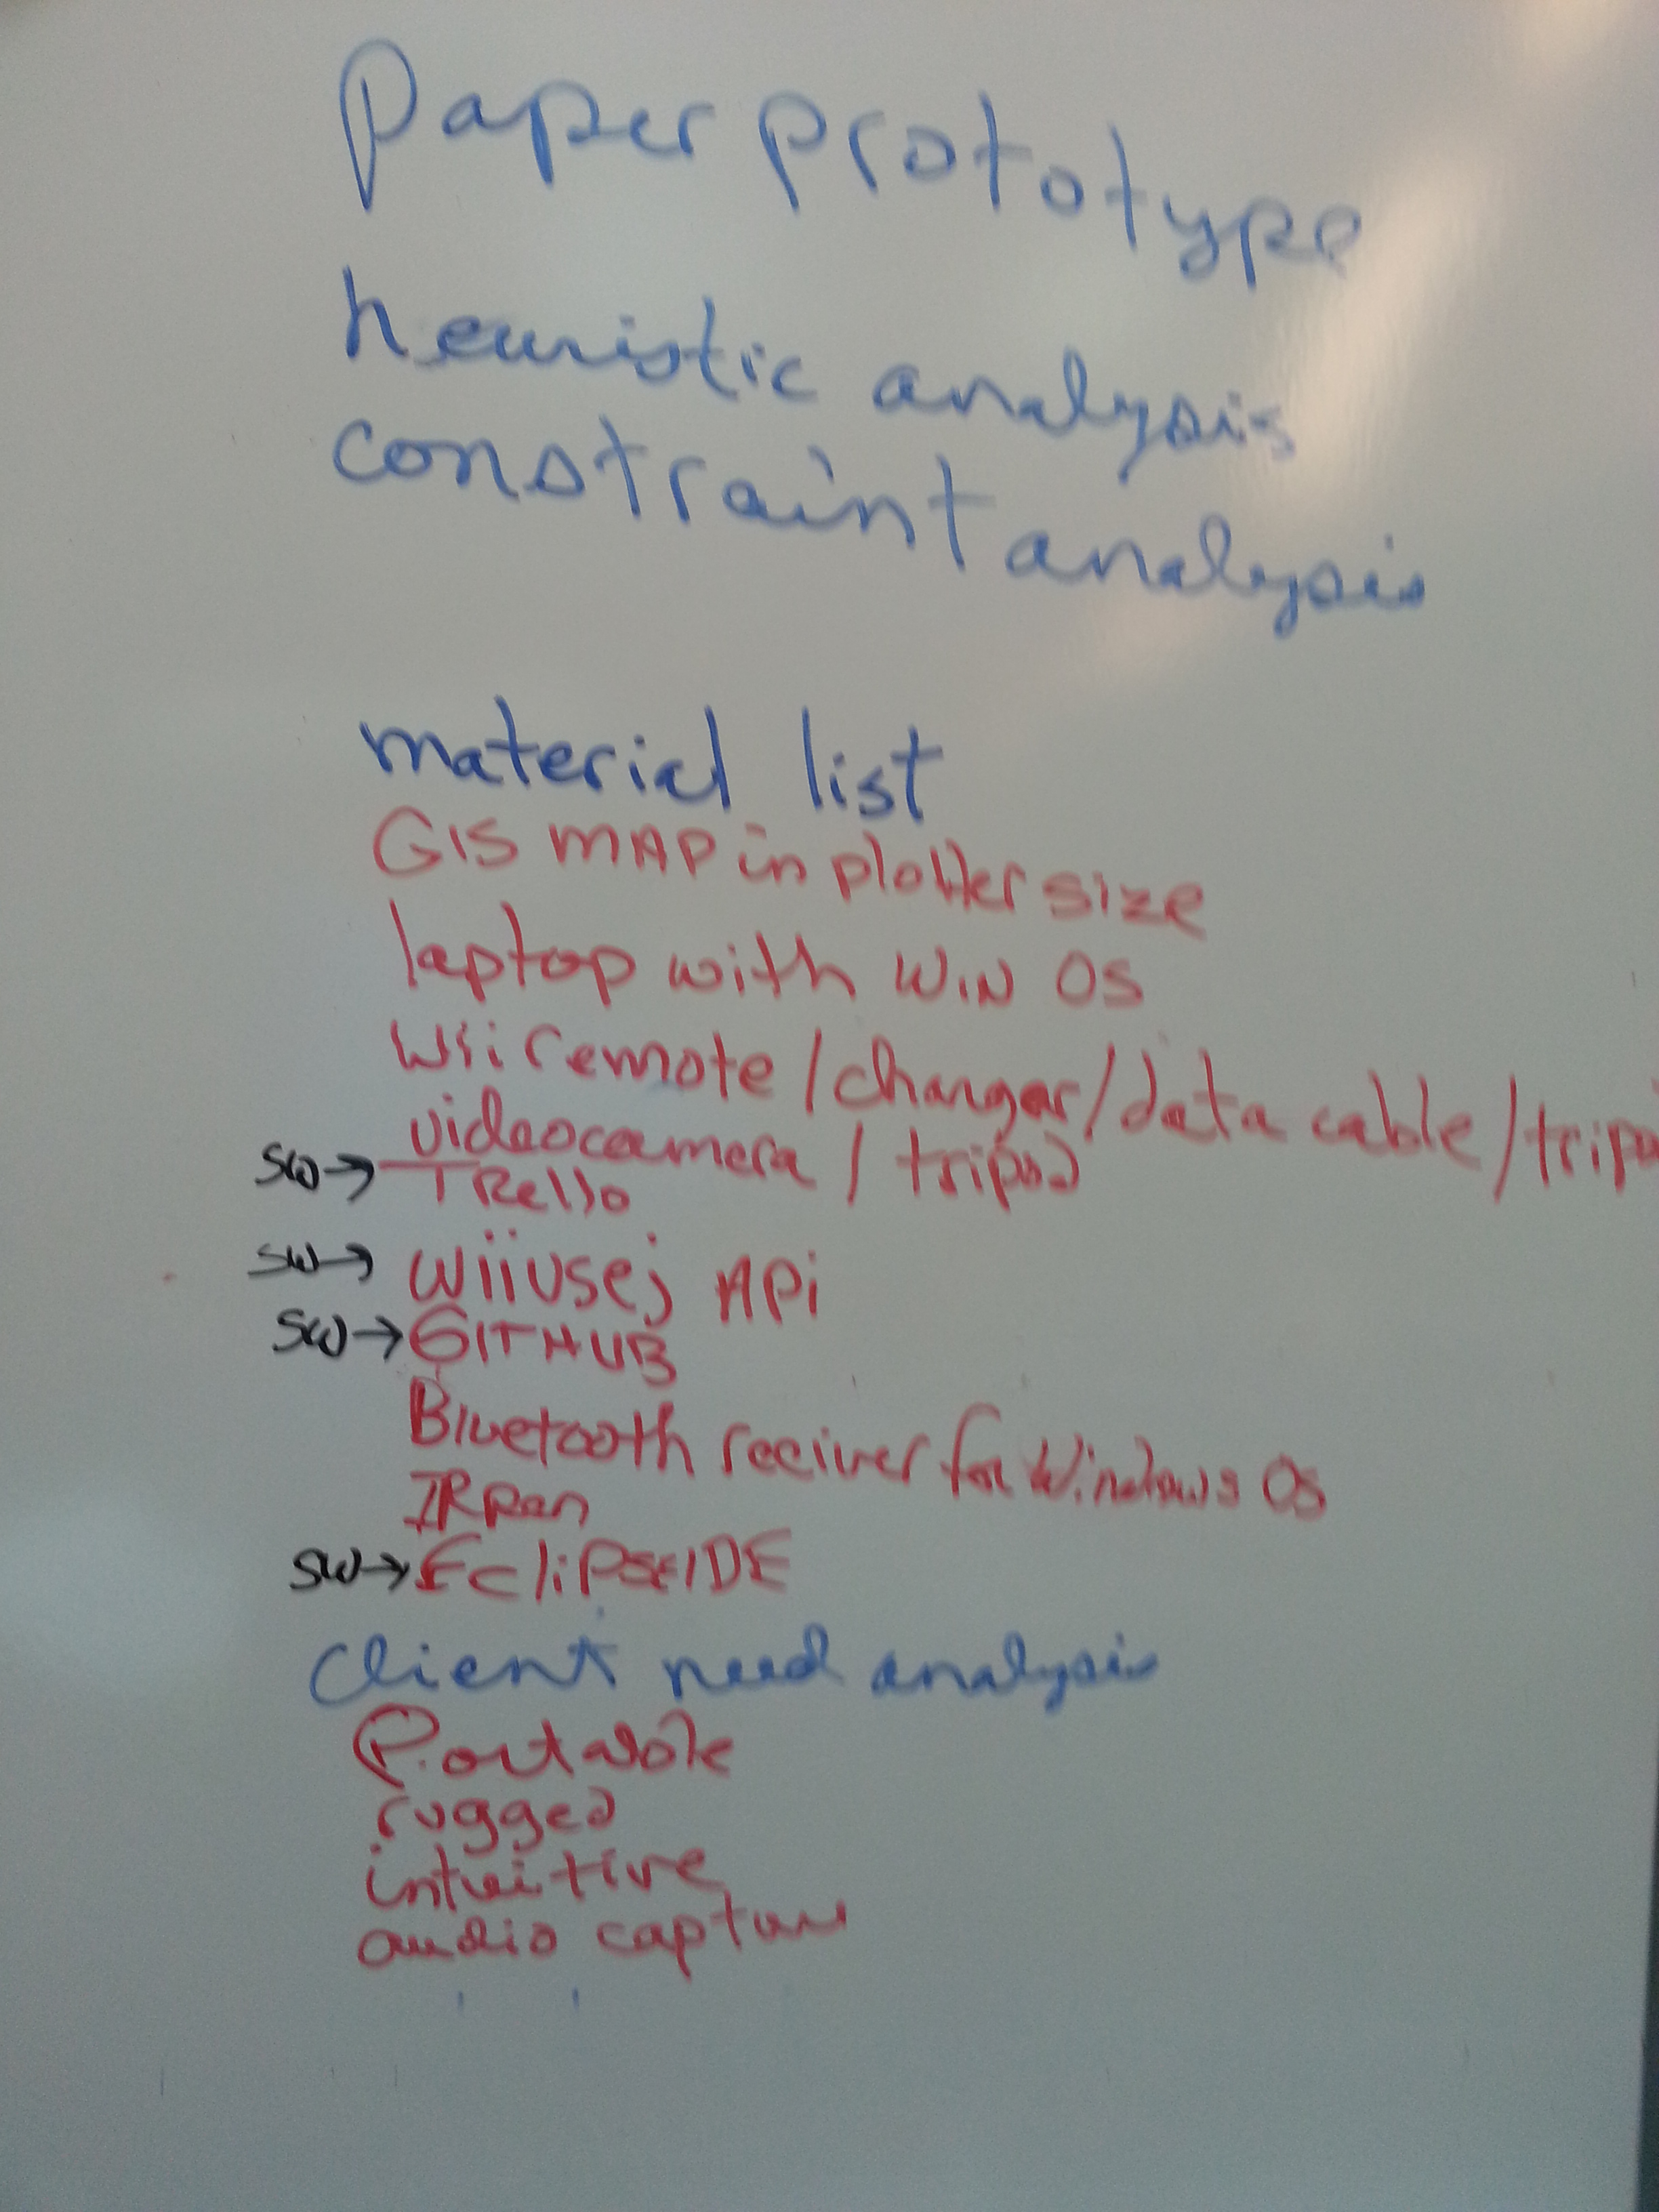 Paper prototype
heuristic analysis
constraint analysis
material list
GIS MAP in plotter size
laptop with WIN OS
Wii remote / charger / data cable / tripo
videocamera / tripod
SW → TRello
SW → Wiiusej APi
SW → GITHUB
Bluetooth reciver for Windows OS
IR Pen
SW → EcliPSE IDE
Client need analysis
Portable
rugged
intuitive
audio capture